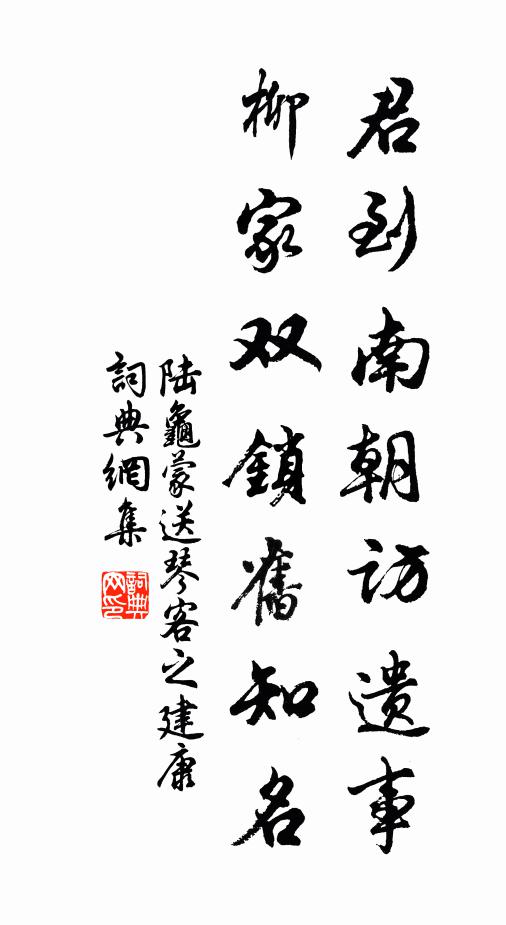 君到南朝訪遺事
柳家双鎖舊知名
陸龜蒙送琴客之建康
詞典網集
詞典网印